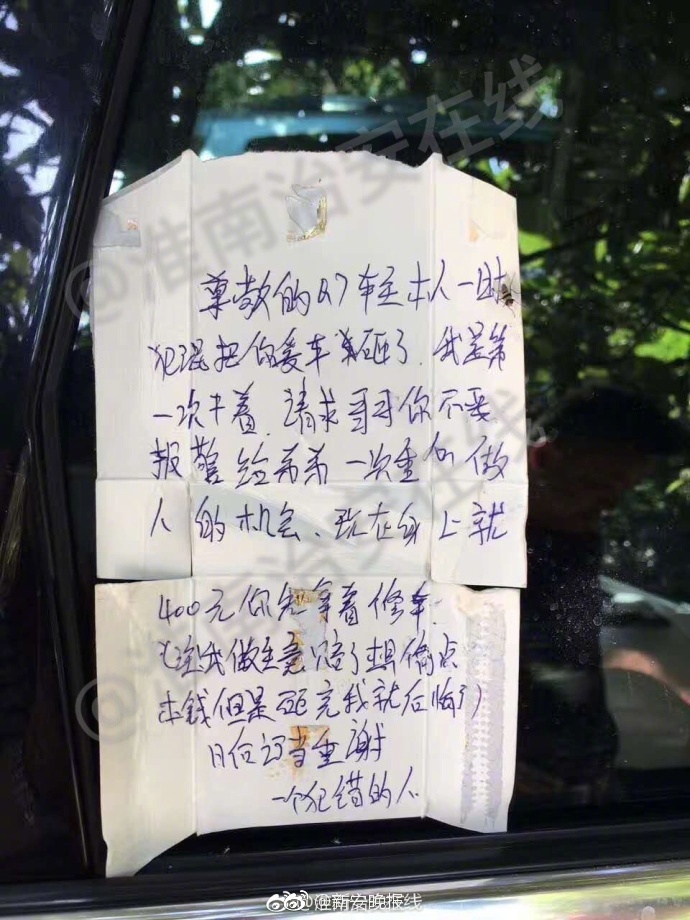 尊敬的Q7车主本人一时
犯混把你爱车砸了.我是第
一次干着.请求哥哥你不要
报警给弟弟一次重何做
人的机会、现在身上就
400元你先拿着修车.
我做生意赔了想偷点
本钱但是砸完我就后悔了)
日后当重谢
一个犯错的人
@淮南治安在线
@淮南治安在线
新安晚报